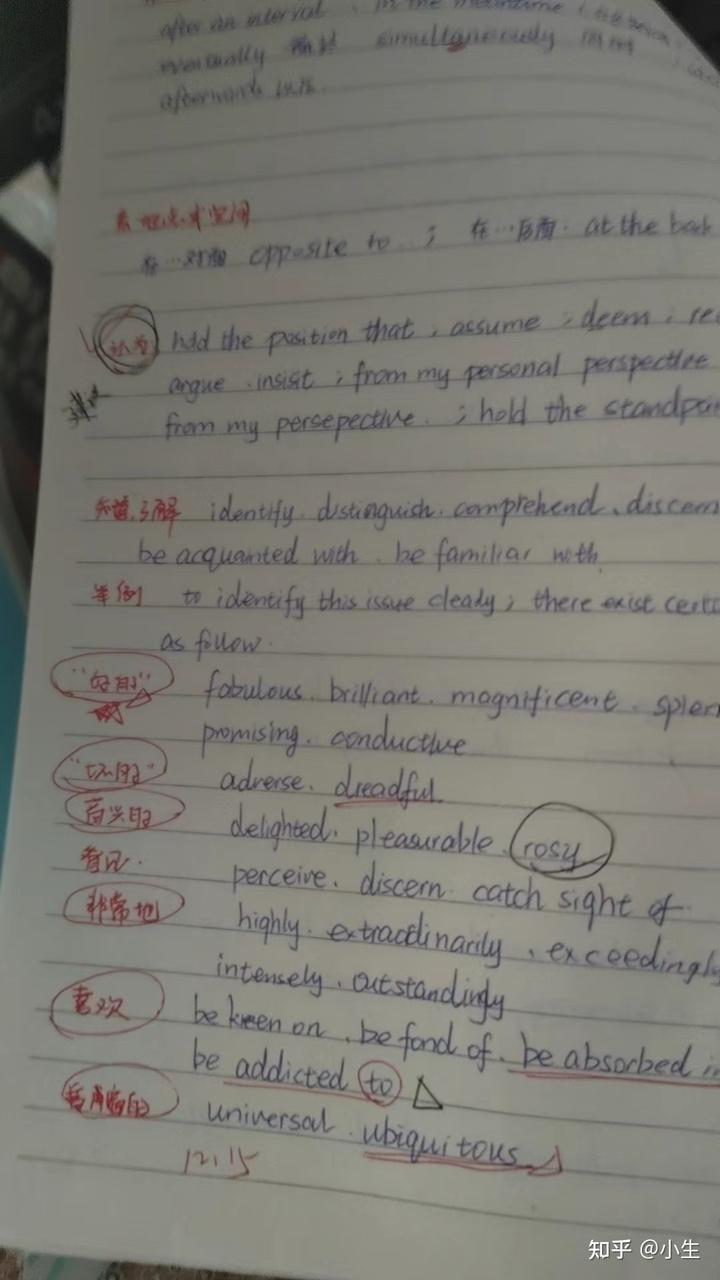 after an interval . in the meantime
eventually simultaneously 同时
afterwards 以后
表 地点或空间
在…对面 opposite to . ; 在…后面 . at the back
认为 hold the position that , assume ; deem ;
argue . insist ; from my personal perspective
from my persepective . ; hold the
知道.了解 identify . distinguish . comprehend . discern
be acquanted with . be familiar with .
举例 to identify this issue cleady ; there exist
as follow .
"好的" fabulous . brilliant . magnificent .
promising . conductive
"坏的" adverse . dreadful
高兴的 delighted . pleasurable . rosy
看见 . perceive . discern . catch sight of .
非常地 highly . extraodinarily . exceedingly
intensely . outstandingly
喜欢 be keen on . be fond of . be absorbed
be addicted to
普遍的 universal . ubiquitous
12.15
知乎 @小生